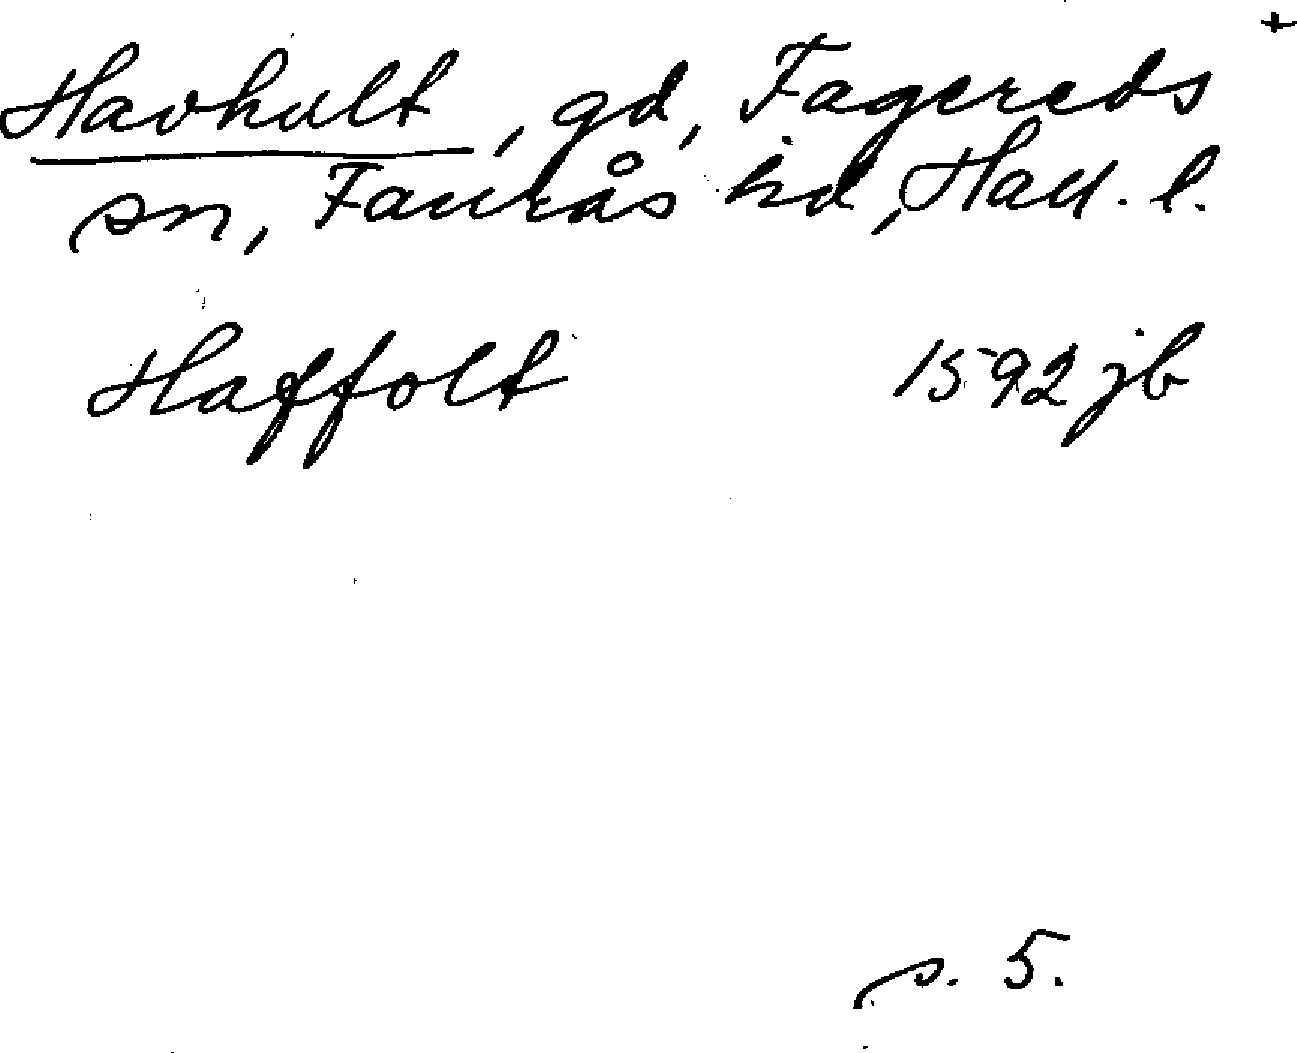 +
Havhult, gd, Fagereds
sn, Faurås hd, Hall. l.
Haffolt 1592 jb
s. 5.